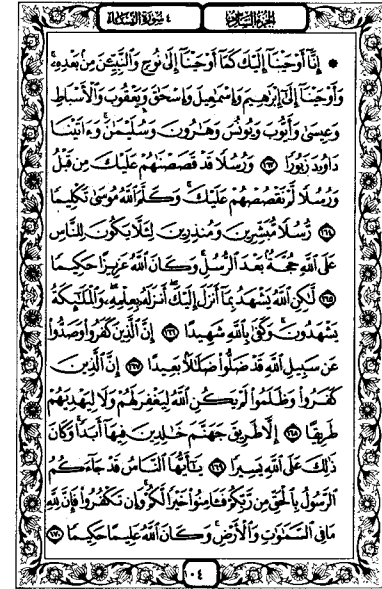 الجزء السادس ٤ سورة النساء
* إِنَّآ أَوْحَيْنَآ إِلَيْكَ كَمَآ أَوْحَيْنَآ إِلَىٰ نُوحٍ وَٱلنَّبِيِّـۧنَ مِنۢ بَعْدِهِۦۚ
وَأَوْحَيْنَآ إِلَىٰٓ إِبْرَٰهِيمَ وَإِسْمَٰعِيلَ وَإِسْحَٰقَ وَيَعْقُوبَ وَٱلْأَسْبَاطِ
وَعِيسَىٰ وَأَيُّوبَ وَيُونُسَ وَهَٰرُونَ وَسُلَيْمَٰنَۚ وَءَاتَيْنَا
دَاوُۥدَ زَبُورًا ١٦٣ وَرُسُلًا قَدْ قَصَصْنَٰهُمْ عَلَيْكَ مِن قَبْلُ
وَرُسُلًا لَّمْ نَقْصُصْهُمْ عَلَيْكَۚ وَكَلَّمَ ٱللَّهُ مُوسَىٰ تَكْلِيمًا
١٦٤ رُّسُلًا مُّبَشِّرِينَ وَمُنذِرِينَ لِئَلَّا يَكُونَ لِلنَّاسِ
عَلَى ٱللَّهِ حُجَّةٌۢ بَعْدَ ٱلرُّسُلِۚ وَكَانَ ٱللَّهُ عَزِيزًا حَكِيمًا
١٦٥ لَّٰكِنِ ٱللَّهُ يَشْهَدُ بِمَآ أَنزَلَ إِلَيْكَۖ أَنزَلَهُۥ بِعِلْمِهِۦۖ وَٱلْمَلَٰٓئِكَةُ
يَشْهَدُونَۚ وَكَفَىٰ بِٱللَّهِ شَهِيدًا ١٦٦ إِنَّ ٱلَّذِينَ كَفَرُوا۟ وَصَدُّوا۟
عَن سَبِيلِ ٱللَّهِ قَدْ ضَلُّوا۟ ضَلَٰلًۢا بَعِيدًا ١٦٧ إِنَّ ٱلَّذِينَ
كَفَرُوا۟ وَظَلَمُوا۟ لَمْ يَكُنِ ٱللَّهُ لِيَغْفِرَ لَهُمْ وَلَا لِيَهْدِيَهُمْ
طَرِيقًا ١٦٨ إِلَّا طَرِيقَ جَهَنَّمَ خَٰلِدِينَ فِيهَآ أَبَدًاۚ وَكَانَ
ذَٰلِكَ عَلَى ٱللَّهِ يَسِيرًا ١٦٩ يَٰٓأَيُّهَا ٱلنَّاسُ قَدْ جَآءَكُمُ
ٱلرَّسُولُ بِٱلْحَقِّ مِن رَّبِّكُمْ فَـَٔامِنُوا۟ خَيْرًا لَّكُمْۚ وَإِن تَكْفُرُوا۟ فَإِنَّ لِلَّهِ
مَا فِى ٱلسَّمَٰوَٰتِ وَٱلْأَرْضِۚ وَكَانَ ٱللَّهُ عَلِيمًا حَكِيمًا ١٧٠
١٠٤